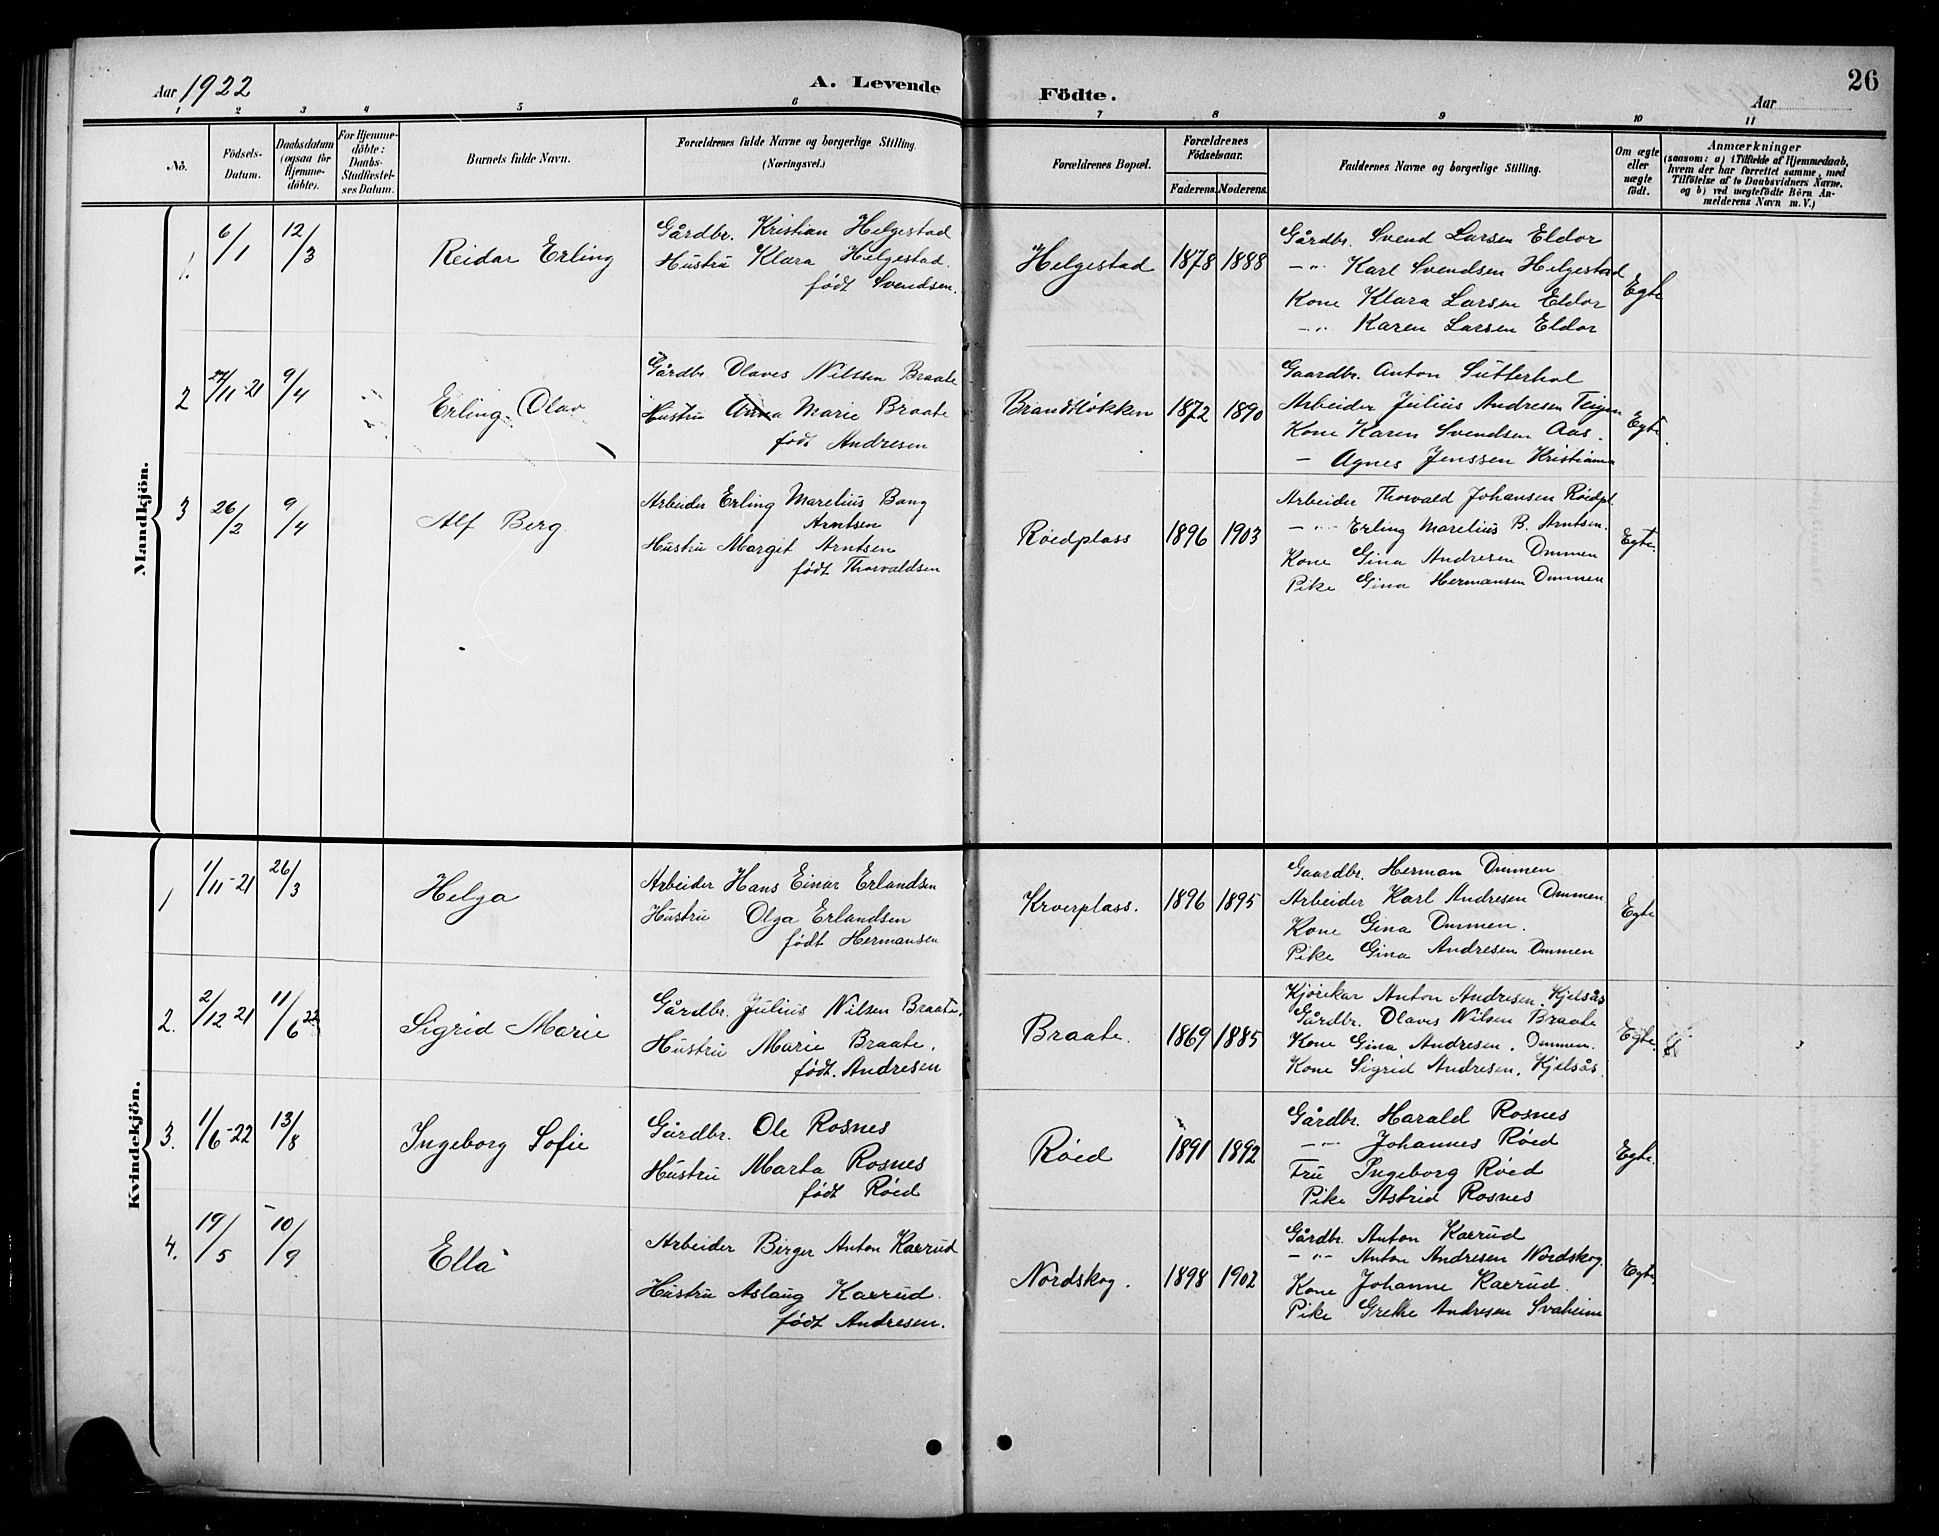 Aar 1922
A. Levende
Födte.
Aar
26
1 2 3 4 5 6 7 8 9 10 11
No.
Födsels-
Datum.
Daabsdatum
(ogsaa for
Hjemme-
döbte).
For Hjemme-
döbte:
Daabs-
Stadfæstel-
ses Datum.
Barnets fulde Navn.
Forældrenes fulde Navne og borgerlige Stilling.
(Næringsvei.)
Forældrenes Bopæl.
Forældrenes
Födselsaar.
Faderens. Moderens.
Faddernes Navne og borgerlige Stilling.
Om ægte
eller
uægte
födt.
Anmærkninger
(saasom: a) i Tilfælde af Hjemmedaab,
hvem der har forrettet samme, med
Tilföielse af to Daabsvidners Navne,
og b) ved uægtefödte Börn An-
melderens Navn m. V.)
Mandkjön.
1. 6/1 12/3 Reidar Erling
Gårdbr. Kristian Helgestad
Hustru Klara Helgestad.
født Svendsen.
Helgestad 1878 1888
Gårdbr. Svend Larsen Eldor
–"– Karl Svendsen Helgestad
Kone Klara Larsen Eldor
–"– Karen Larsen Eldor
Egte
2 27/11-21 9/4 Erling Olav
Gårdbr. Olaves Nilssen Braate
Hustru Anna Marie Braate
født Andresen
Brandsløkken 1872 1890
Gaardbr. Anton Sutterhol
Arbeider Julius Andresen Teigen
Kone Karen Svendsen Aas.
– Agnes Jenssen Kristiania
Egte.
3 26/2 9/4 Alf Berg.
Arbeider Erling Marelius Bang
Arntsen
Hustru Margit Arntsen
født Thorvaldsen
Røedplass 1896 1903
Arbeider Thorvald Johansen Røidpl.
–"– Erling Marelius B. Arntsen.
Kone Gina Andresen Ommen
Pike Gina Hermansen Ommen
Egte.
Kvindekjön.
1 1/11-21 26/3 Helga
Arbeider Hans Einar Erlandsen
Hustru Olga Erlandsen
født Hermansen
Krverplass. 1896 1895
Gaardbr. Herman Ommen
Arbeider Karl Andresen Ommen
Kone Gina Ommen.
Pike Gina Andresen Ommen
Egte
2. 2/12 21 11/6 22 Sigrid Marie
Gårdbr. Julius Nilsen Braate.
Hustru Marie Braate.
født. Andresen
Braate. 1869 1885
Kjørekar Anton Andresen. Kjelsås
Gårdbr. Olaves Nilsen Braate
Kone Gina Andresen. Ommen.
Kone Sigrid Andresen. Kjelsås.
Egte.
3. 1/6-22 13/8 Ingeborg Sofie
Gårdbr. Ole Rosnes
Hustru Marta Rosnes
født Røed
Røed 1891 1892
Gårdbr. Harald Rosnes
–"– Johannes Røed
Fru Ingeborg Røed
Pike Astrid Rosnes
Egte.
4. 19/5 10/9 Ella
Arbeider Birger Anton Kaxrud
Hustru Aslaug Kaxrud.
født Andresen.
Nordskog. 1898 1902
Gårdbr. Anton Kaxrud
–"– Anton Andresen Nordskog.
Kone Johanne Kaxrud.
Pike Grethe Andresen Svaheim
Egte